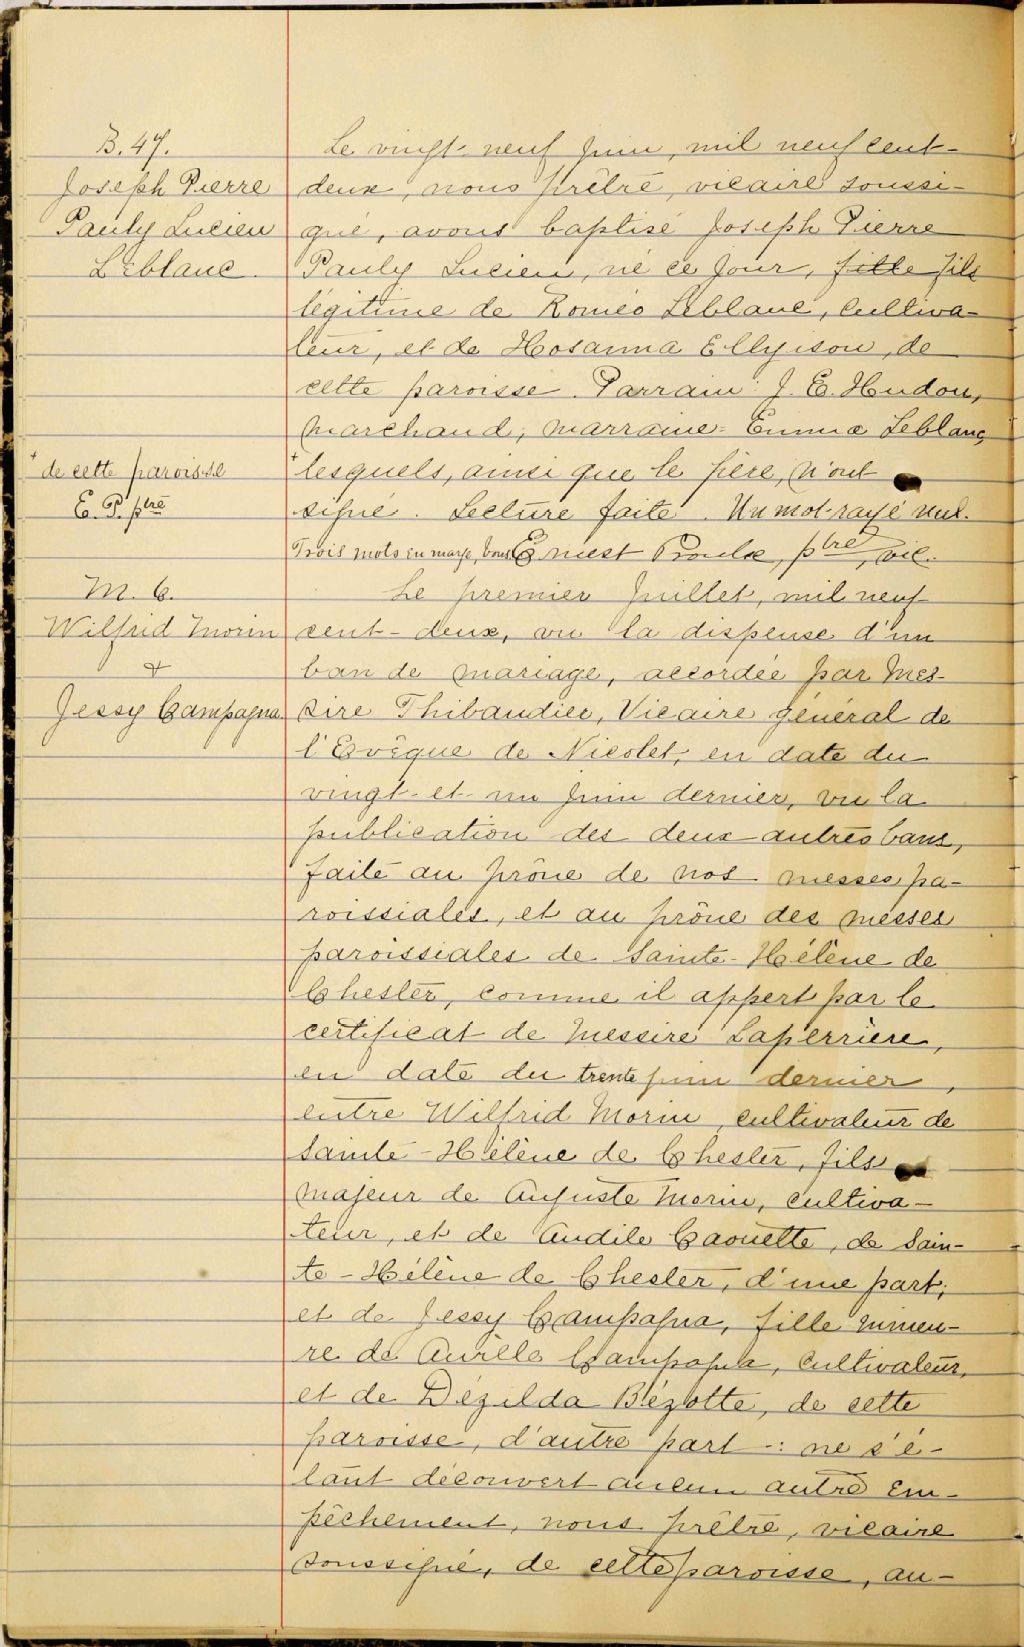 B. 47.
Joseph Pierre
Pauly Lucien
Leblanc.
Le vingt-neuf juin, mil neuf cent-
deux, nous prêtre, vicaire soussi-
gné, avons baptisé Joseph Pierre
Pauly Lucien, né ce jour, fille fils
légitime de Roméo Leblanc, cultiva-
teur, et de Hosanna Ellyison, de
cette paroisse. Parrain: J. E. Hudon,
marchand; marraine: Emma Leblanc,
+ de cette paroisse
E. P. ptre
+ lesquels, ainsi que le père, n'ont
signé. Lecture faite. Un mot rayé nul.
Trois mots en marge, bons Ernest Proulx, ptre, vic.
M. 6.
Wilfrid Morin
&
Jessy Campagna.
Le premier Juillet, mil neuf
cent-deux, vu la dispense d'un
ban de mariage, accordée par Mes-
sire Thibaudier, Vicaire général de
l'Evêque de Nicolet, en date du
vingt-et-un juin dernier, vu la
publication des deux autres bans,
faite au prône de nos messes pa-
roissiales, et au prône des messes
paroissiales de Sainte-Hélène de
Chester, comme il appert par le
certificat de Messire Laperrière,
en date du trente juin dernier,
entre Wilfrid Morin, cultivateur de
Sainte-Hélène de Chester, fils
majeur de Auguste Morin, cultiva-
teur, et de Audile Caouette, de Sain-
te-Hélène de Chester, d'une part;
et de Jessy Campagna, fille mineu-
re de Aurèle Campagna, cultivateur,
et de Dézilda Bézotte, de cette
paroisse, d'autre part -: ne s'é-
tant découvert aucun autre em-
pêchement, nous prêtre, vicaire
soussigné, de cette paroisse, au-